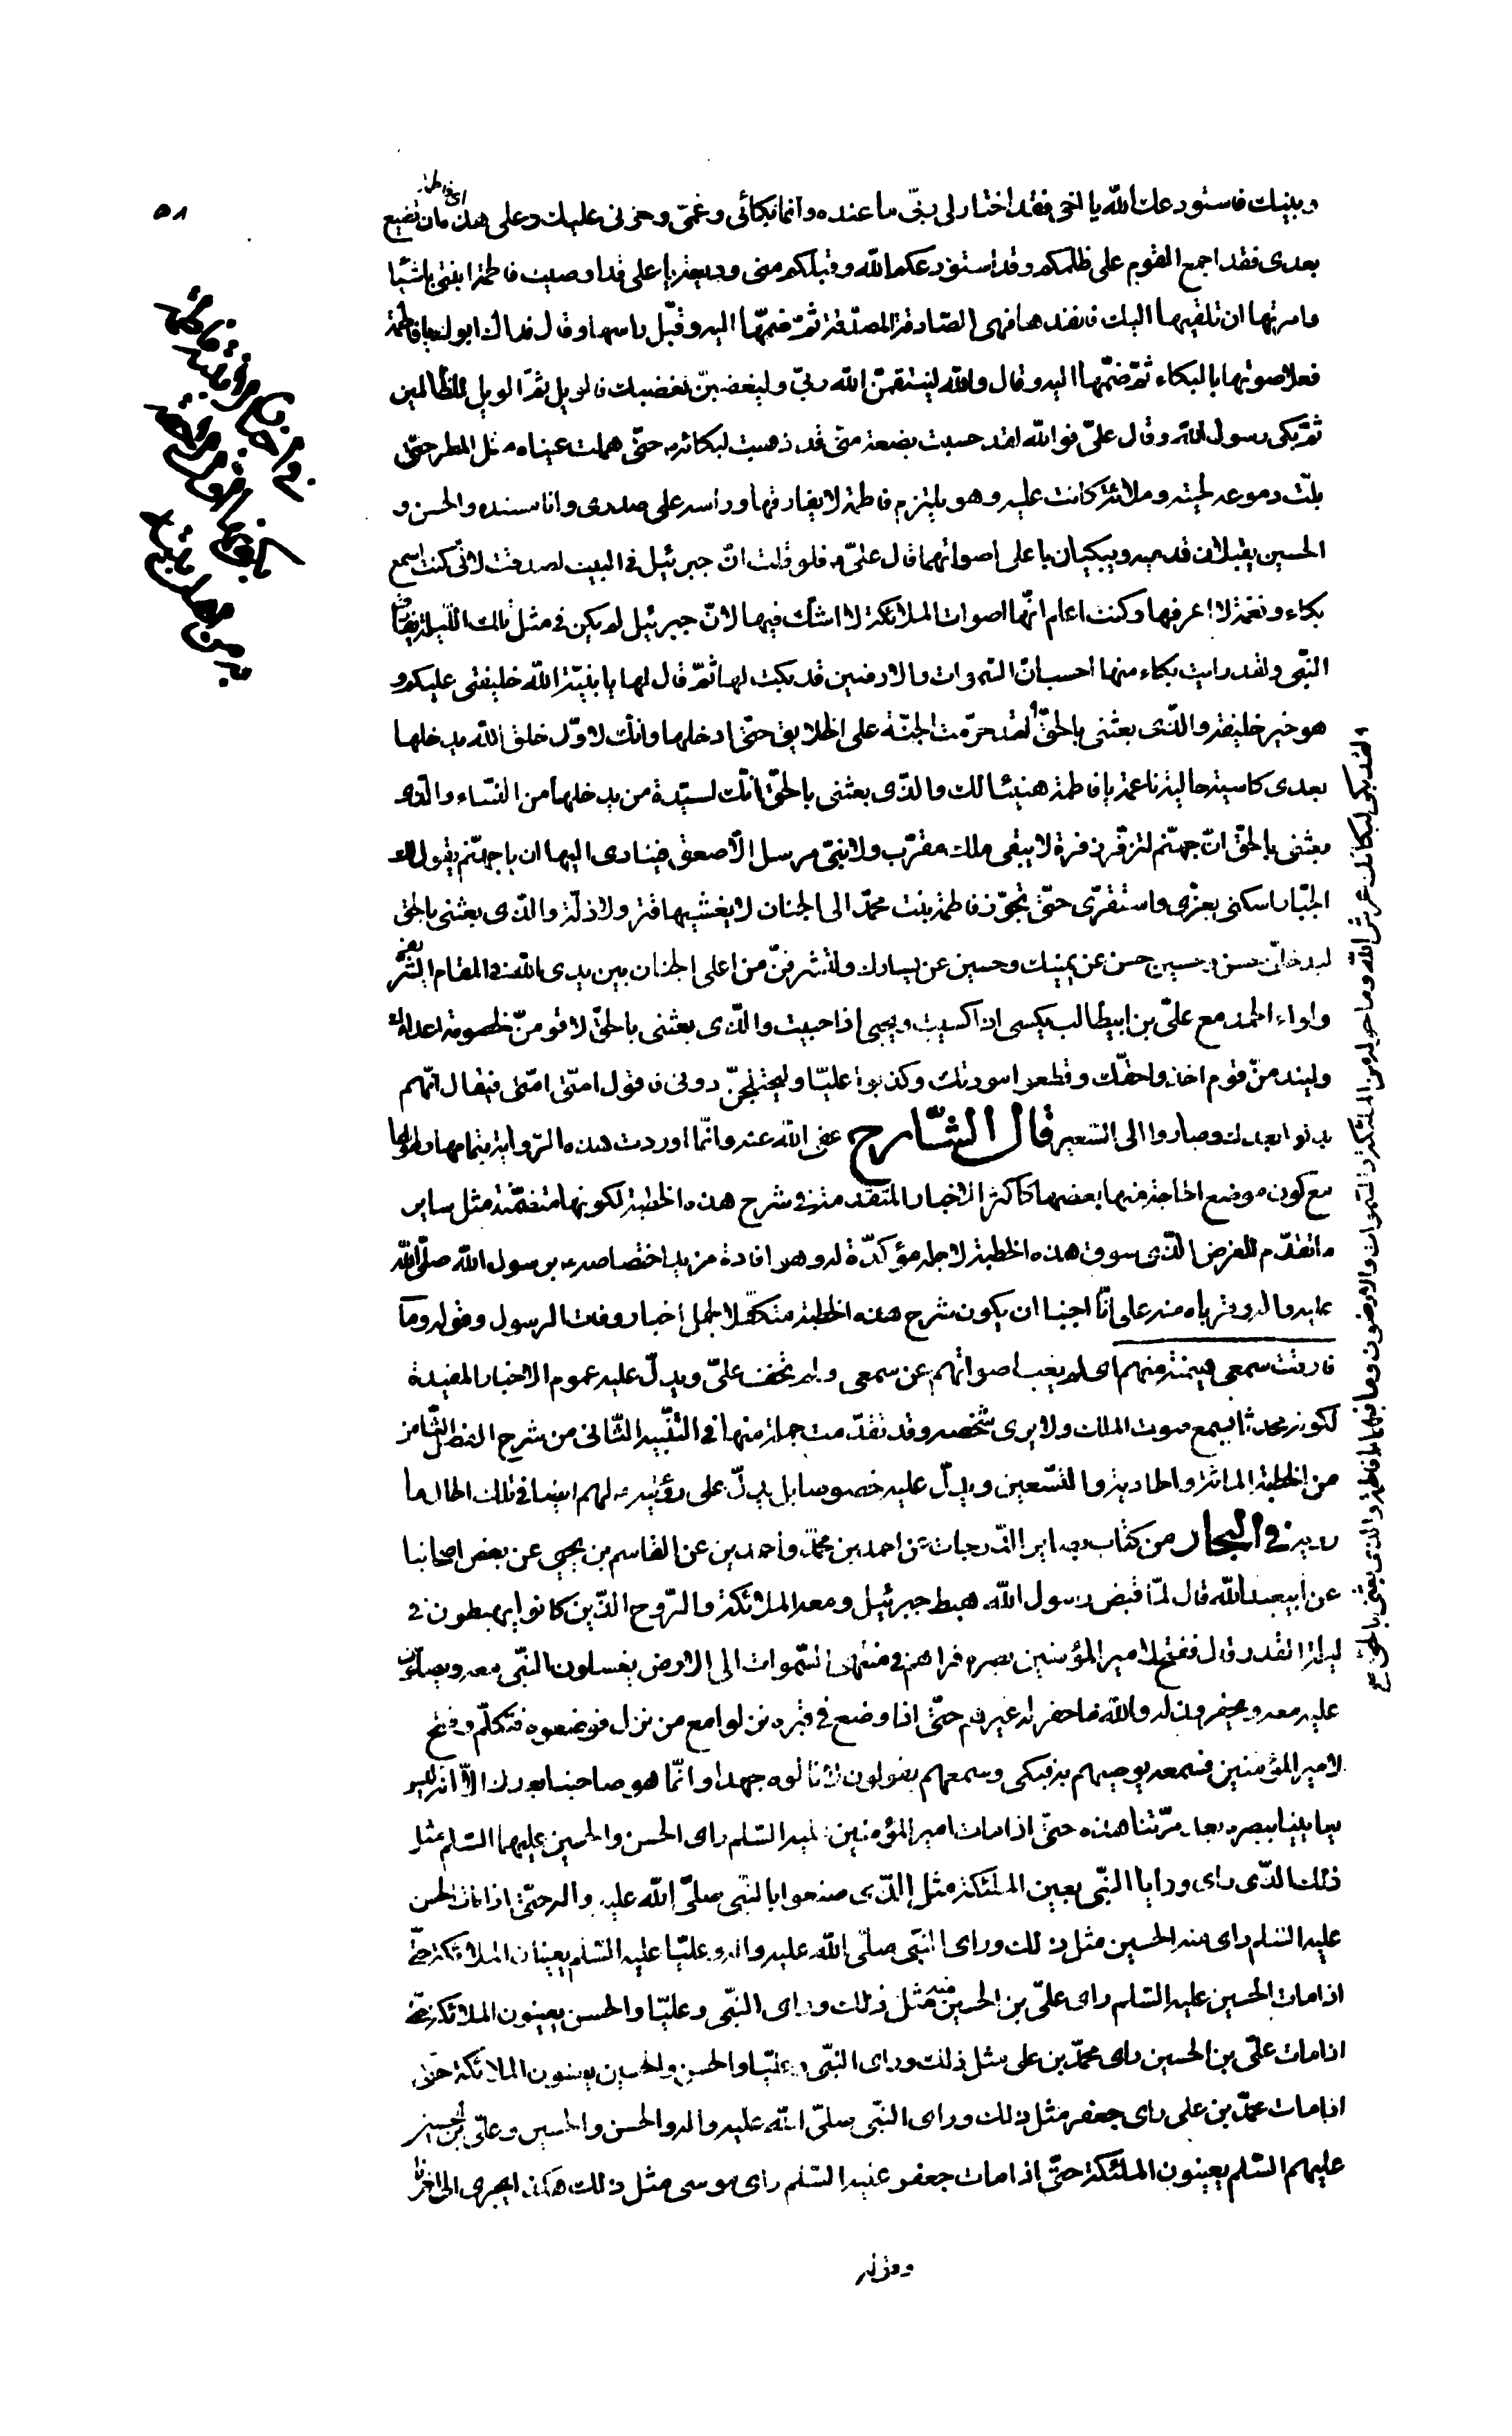 وبينك فاستودعك الله يا اخى فقد اختار لى ربّى ما عنده وانما بكائى وغمّى وحزنى عليك وعلى هذه ان تضيع
اى فاطمة
بعدى فقد اجمع القوم على ظلمكم وقد استودعكم الله وقبلكم منى وديعة يا على قد اوصيت فاطمة ابنتى باشياء
وامرتها ان تلقيها اليك فانفذها فهى الصّادقة المصدّقة ثمّ ضمّها اليه وقبّل راسها وقال فداك ابوك يا فاطمة
فعلا صوتها بالبكاء ثمّ ضمّها اليه وقال والله لينتقمنّ الله ربّى وليغضبنّ لغضبك فالويل ثمّ الويل للظالمين
ثمّ بكى رسول الله وقال علىّ فوالله لقد حسبت بضعة منّى قد ذهبت لبكائه حتّى هملت عيناه مثل المطر حتّى
بلّت دموعه لحيته وملائة كانت عليه وهو يلتزم فاطمة لا يفارقها وراسه على صدرى وانا مسنده والحسن و
الحسين يقبلان قدميه ويبكيان باعلى اصواتهما قال علىّ فلو قلت انّ جبرئيل فى البيت لصدقت لانّى كنت اسمع
بكاء ونغمة لا اعرفها وكنت اعلم انّها اصوات الملائكة لا اشك فيها لانّ جبرئيل لم يكن فى مثل تلك الليلة يفارق
النبّى ولقد رايت بكاء منها احسب انّ السّموات والارضين قد بكت لها ثمّ قال لها يا بنيّة الله خليفتى عليكم و
هو خير خليفة والّذى بعثنى بالحقّ لقد حرّمت الجنّة على الخلايق حتّى ادخلها وانّك لاوّل خلق الله يدخلها
بعدى كاسية حالية ناعمة يا فاطمة هنيئا لك والّذى بعثنى بالحقّ انّك لسيّدة من يدخلها من النّساء والّذى
بعثنى بالحقّ انّ جهنّم لتزفّر زفرة لا يبقى ملك مقرّب ولا نبىّ مرسل الّا صعق فينادى اليها ان يا جهنّم يقول لك
الجبّار اسكنى بعزّى واستقرّى حتّى تجوّز فاطمة بنت محمّد الى الجنان لا يغشيها قتر ولا ذلّة والّذى بعثنى بالحقّ
ليدخلنّ حسن وحسين حسن عن يمينك وحسين عن يسارك ولتشرفنّ من اعلى الجنان بين يدى الله فى المقام الشّريف
ولواء الحمد مع علىّ بن ابيطالب يكسى اذا كسيت ويحبى اذا حبيت والّذى بعثنى بالحقّ لاقومنّ لخصومة اعدائك
وليندمنّ قوم اخذوا حقّك وقطعوا مودتك وكذبوا عليّا وليختلجنّ دونى فاقول امتى امّتى فيقال انّهم
بدلوا بعدك وصاروا الى السّعير قال الشّارح عفى الله عنه وانّما اوردت هذه الرّواية بتمامها وطولها
مع كون موضع الحاجة منها بعضها كاكثر الاخبار المتقدمة فى شرح هذه الخطبة لكونها متضمّنة مثل ساير
ما تقدّم للغرض الّذى سوق هذه الخطبة لاجله مؤكّدة له وهو افادة مزيد اختصاصه برسول الله صلّى الله
عليه واله وقرباه منه على انّا اجبنا ان يكون شرح هذه الخطبة متكفّلا لجمل اخبار وفات الرسول وقوله وما
فارقت سمعى هينمة منهم اى لم يغب اصواتهم عن سمعى ولم تخف علىّ ويدلّ عليه عموم الاخبار المفيدة
لكونه محدثا يسمع صوت الملك ولا يرى شخصه وقد تقدّمت جملة منها فى التنّبيه الثّانى من شرح الفصل الثّامن
من الخطبة المائة والحادية والتسّعين ويدلّ عليه خصوصا بل يدلّ على رؤيته لهم ايضا فى تلك الحال ما
رويه فى البحار من كتاب بصاير الدّرجات عن احمد بن محمّد واحمد بن عن القاسم بن يحيى عن بعض اصحابنا
عن ابيعبد الله قال لمّا قبض رسول الله هبط جبرئيل ومعه الملائكة والرّوح الّذين كانوا يهبطون فى
ليلة القدر قال ففتح لامير المؤمنين بصره فراهم فى منتهى السّموات الى الارض يغسلون النبّى معه ويصلّون
عليه معه ويحفرون له والله ما حفر له غيرهم حتّى اذا وضع فى قبره نزلوا مع من نزل فوضعوه فتكلّم وفتح
لامير المؤمنين فسمعه يوصيهم به فبكى وسمعهم يقولون لا نالوه جهدا وانّما هو صاحبنا بعدك الّا انّه ليس
يعاينا ببصره بعد مرّتنا هذه حتّى اذا مات امير المؤمنين عليه السّلم راى الحسن والحسين عليهما السّلم مثل
ذلك الّذى راى ورايا النبّى يعين الملئكة مثل الّذى صنعوا بالنبّى صلىّ الله عليه واله حتّى اذا مات الحسن
عليه السّلم راى منه الحسين مثل ذلك وراى النبّى صلّى الله عليه واله وعليّا عليه السّلم يعينان الملائكة حتّى
اذا مات الحسين عليه السّلم راى علىّ بن الحسين منه مثل ذلك وراى النبّى وعليّا والحسن يعينون الملائكة حتّى
اذا مات علىّ بن الحسين راى محمّد بن على مثل ذلك وراى النبّى وعليّا والحسن والحسين يعينون الملائكة حتّى
اذا مات محمّد بن على راى جعفر مثل ذلك وراى النبّى صلّى الله عليه واله والحسن والحسين وعلىّ بن الحسين
عليهم السّلم يعينون الملئكة حتّى اذا مات جعفر عليه السّلم راى موسى مثل ذلك هكذا يجرى الى اخرنا
ولقد بكى لبكائك عرش الله وما حوله من الملئكة والسّموات والارضون وما فيهما يا فاطمة والّذى بعثنى بالحق صح